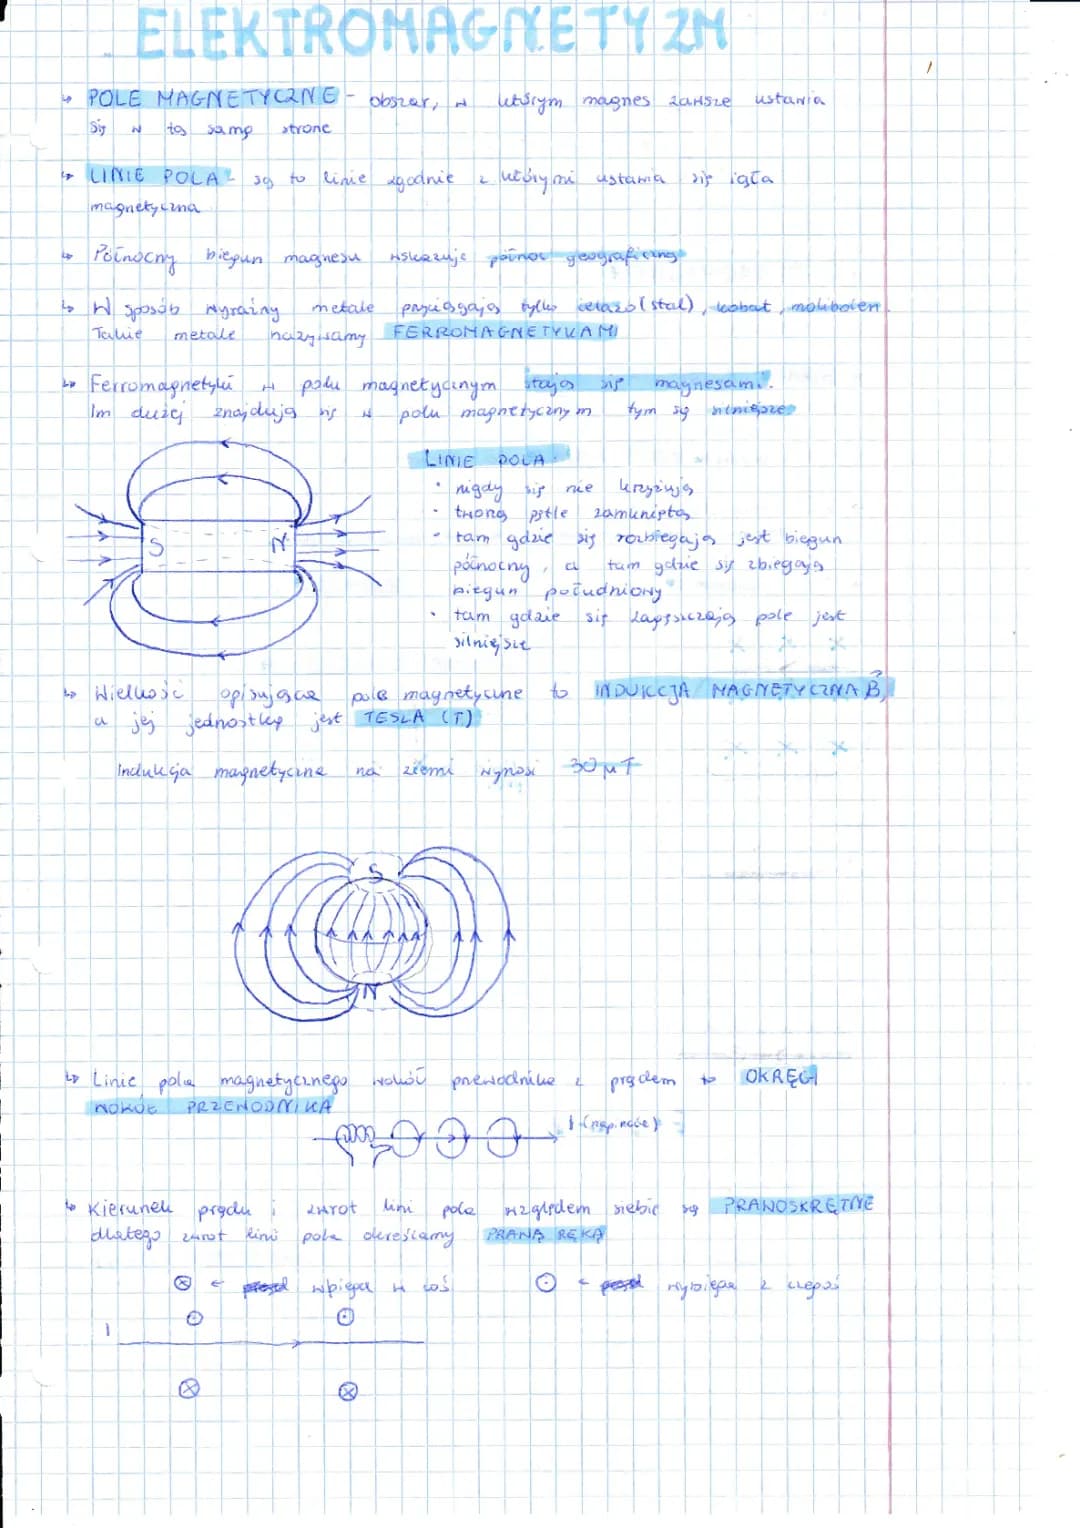 ELEKTROMAGNETYZM
↳ POLE MAGNETYCZNE - obszar, w którym magnes zawsze ustawia
się w tą samą stronę
↳ LINIE POLA - są to linie zgodnie z którymi ustawia się igła
magnetyczna
↳ Północny biegun magnesu wskazuje północ geograficzną
↳ W sposób wyraźny metale przyciągają tylko żelazo (stal), kobalt, molibden.
Takie metale nazywamy FERROMAGNETYKAMI
↳ Ferromagnetyki w polu magnetycznym stają się magnesami.
Im dużej znajdują się w polu magnetycznym tym są silniejsze
LINIE POLA
• nigdy się nie krzyżują
• tworzą pętle zamknięte
• tam gdzie się rozbiegają jest biegun
północny, a tam gdzie się zbiegają
biegun południowy
• tam gdzie się zagęszczają pole jest
silniejsze
S N
↳ Wielkość opisująca pole magnetyczne to INDUKCJA MAGNETYCZNA B,
a jej jednostką jest TESLA (T)
Indukcja magnetyczna na ziemi wynosi 30 μT
S
N
↳ Linie pola magnetycznego wokół przewodnika z prądem to OKRĘGI
WOKÓŁ PRZEWODNIKA
I
↳ Kierunek prądu i zwrot lini pola względem siebie są PRAWOSKRĘTNE
dlatego zwrot lini pola określamy PRAWĄ RĘKĄ
⊗ ← wbiega w coś ⊙ ← wybiega z czegoś
⊙ ⊙
I
⊗ ⊗